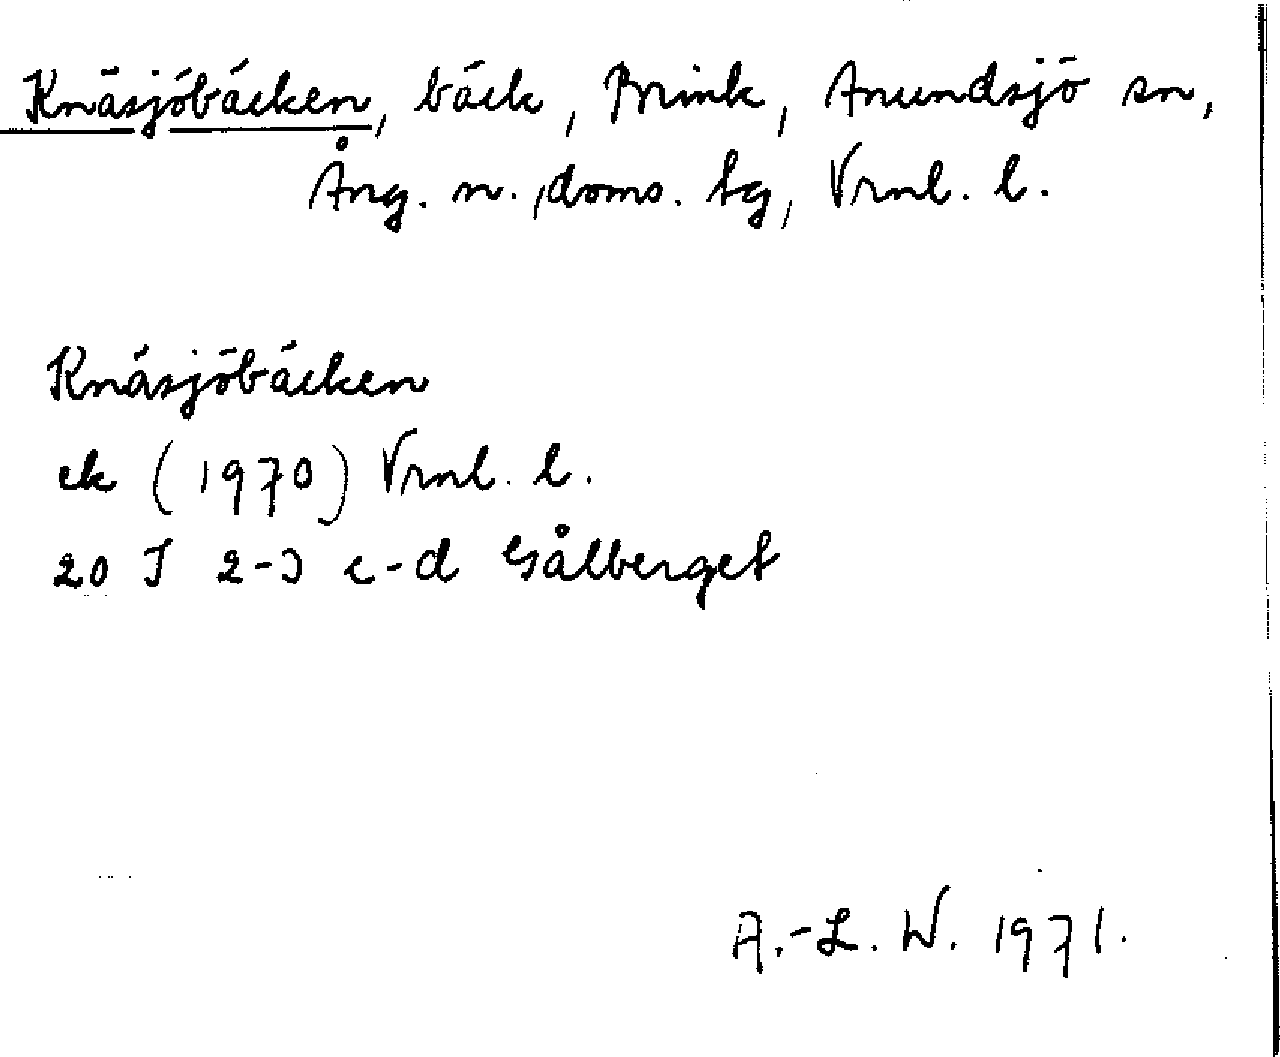 Knäsjöbäcken, bäck, Brink, Anundsjö sn,
Ång. n., doms. tg, Vrnl. l.
Knäsjöbäcken
ek (1970) Vrnl. l.
20 I 2-3 c-d Gålberget
A.-L. W. 1971.